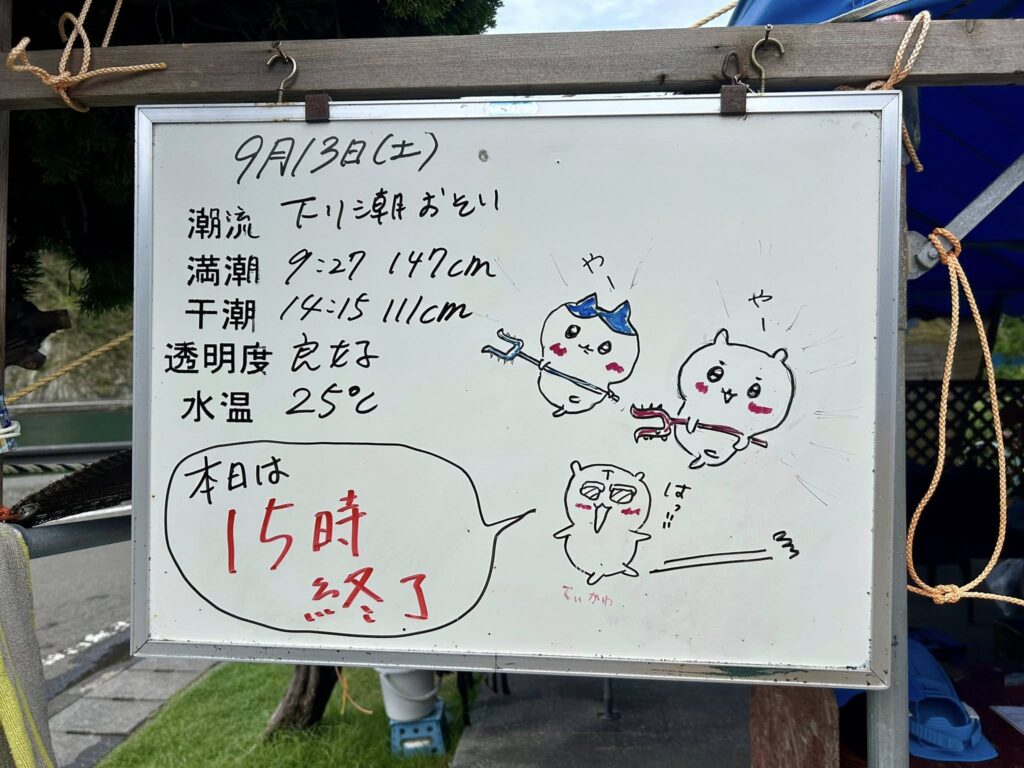 9月13日(土)
潮流 下り潮おそい
満潮 9:27 147cm
干潮 14:15 111cm
透明度 良好
水温 25℃
本日は
15時
終了
やー
やー
はっ!!